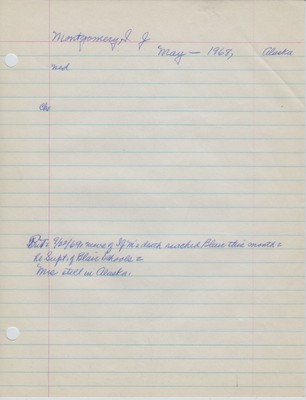 Montgomery, I. J
May — 1967, Alaska
med
che
9/20/67= news of IJM's death reached Blair this month =
Ex Supt. of Blair Schools =
Mrs still in Alaska.